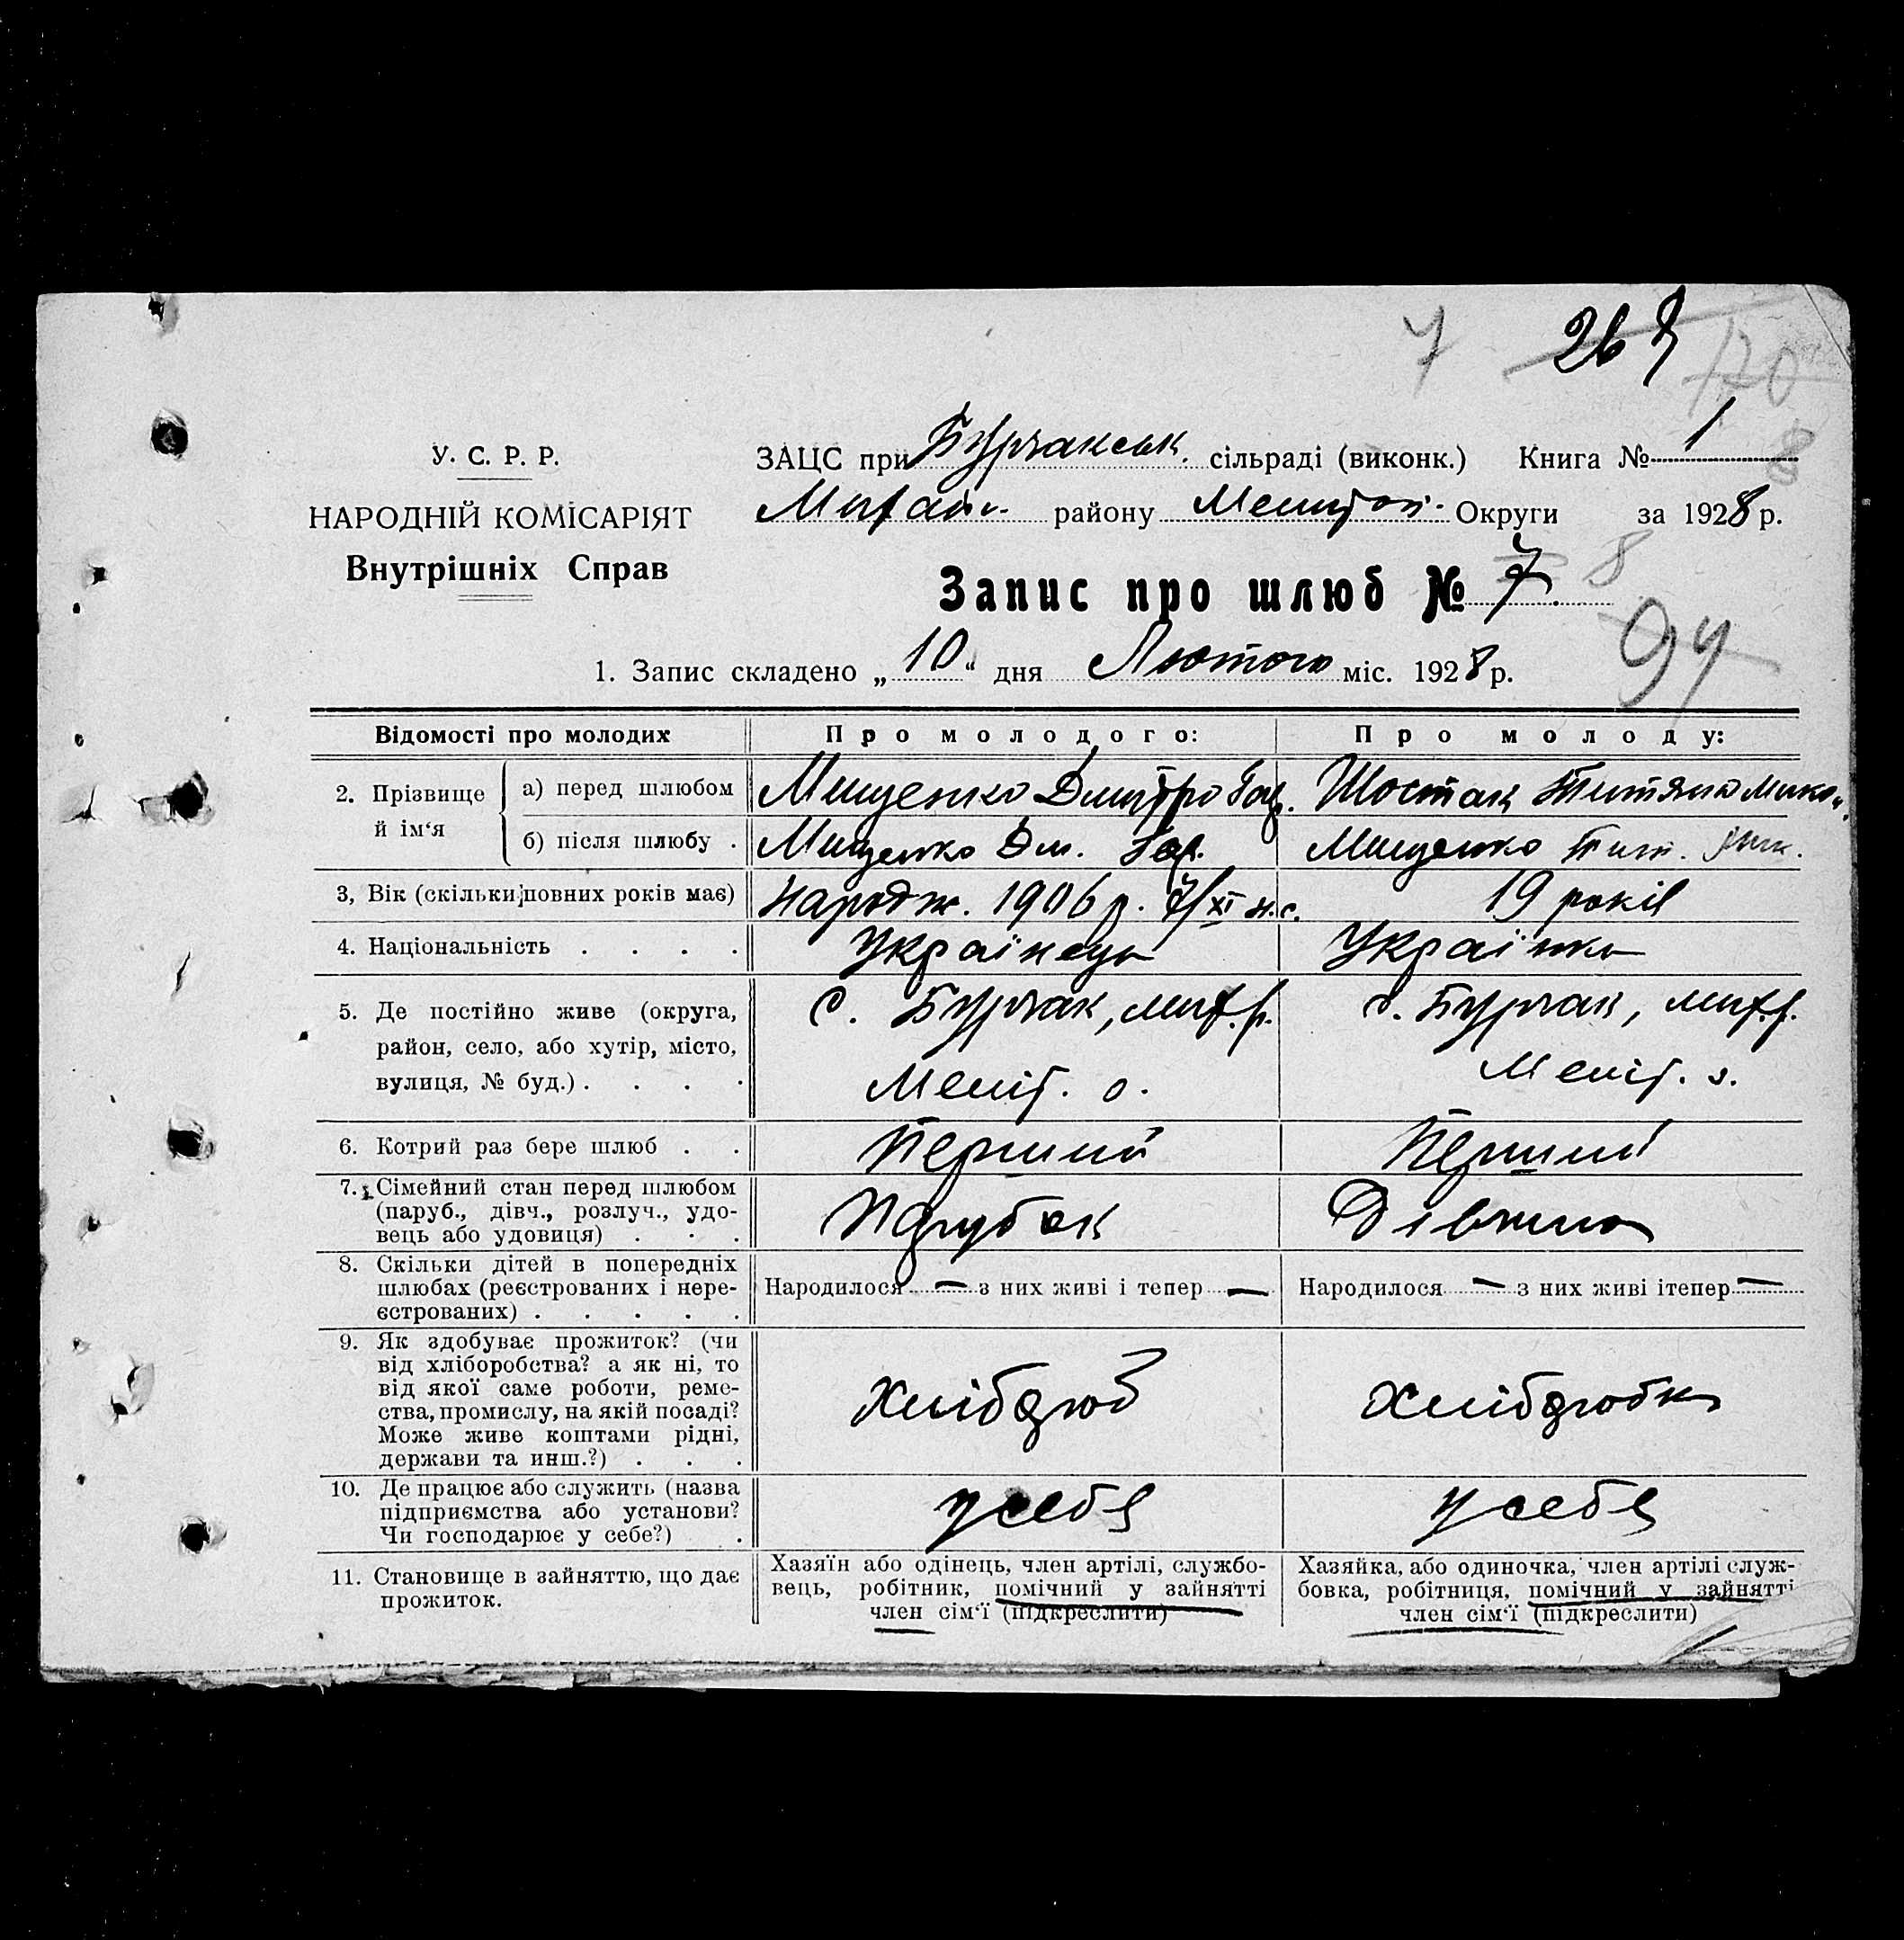 7 267 170
У. С. Р. Р.
НАРОДНІЙ КОМІСАРІЯТ
Внутрішніх Справ
ЗАЦС при Бурчакськ. сільраді (виконк.) Книга № 1 8
району Округи за 1928 р.
Запис про шлюб № 7 8
94
1. Запис складено „10“ дня Лютого міс. 1928 р.
Відомості про молодих Про молодого: Про молоду:
2. Прізвище й ім‘я
а) перед шлюбом Мищенко Дмитро Шостак Титяна Мико.
б) після шлюбу . Мищенко Дм. Мищенко Тит. Мик.
3, Вік (скільки повних років має) Народж. 1906 р. 7/XI н.с. 19 років
4. Національність . . . . Українець Українка
5. Де постійно живе (округа, с. Бурчак, мих. р. с. Бурчак, мих. р.
район, село, або хутір, місто,
вулиця, № буд.) . . . . Меліт. о. Меліт. о.
6. Котрий раз бере шлюб . . Перший Перший
7. Сімейний стан перед шлюбом
(паруб., дівч., розлуч., удо- Парубок Дівчина
вець або удовиця) . . .
8. Скільки дітей в попередніх
шлюбах (реєстрованих і нере- Народилося — з них живі і тепер — Народилося — з них живі ітепер —
єстрованих) . . . . .
9. Як здобуває прожиток? (чи
від хліборобства? а як ні, то
від якої саме роботи, реме-
ства, промислу, на якій посаді? Хлібороб Хліборобка
Може живе коштами рідні,
держави та инш.?) . . .
10. Де працює або служить (назва
підприємства або установи? у себе у себе
Чи господарює у себе?) .
11. Становище в зайняттю, що дає
прожиток.
Хазяїн або одінець, член артілі, службо-
вець, робітник, помічний у зайнятті
член сім‘ї (підкреслити)
Хазяйка, або одиночка, член артілі служ-
бовка, робітниця, помічний у зайнятті
член сім‘ї (підкреслити)